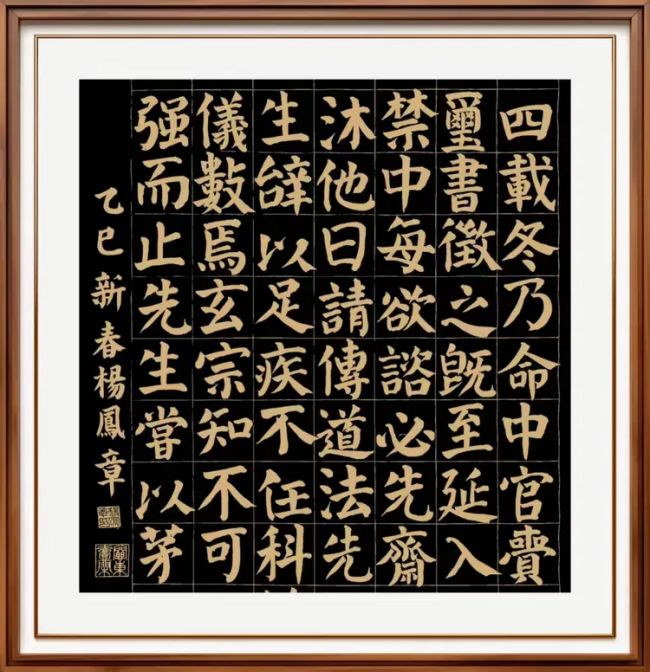 四載冬乃命中官賷
璽書徵之既至延入
禁中每欲諮必先齋
沐他日請傳道法先
生辭以足疾不任科
儀數焉玄宗知不可
强而止先生嘗以茅
乙巳新春楊鳳章